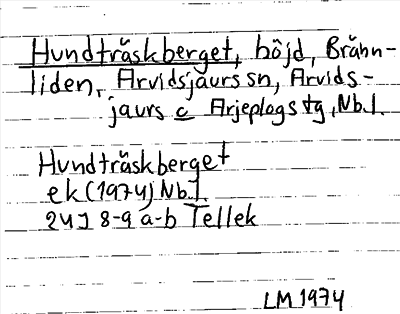 Hundträskberget, höjd, Bränn-
liden, Arvidsjaurs sn, Arvids-
jaurs c Arjeplogs tg, Nb.l.
Hundträskberget
ek (1974) Nb.l.
24J 8-9 a-b Tellek
LM 1974